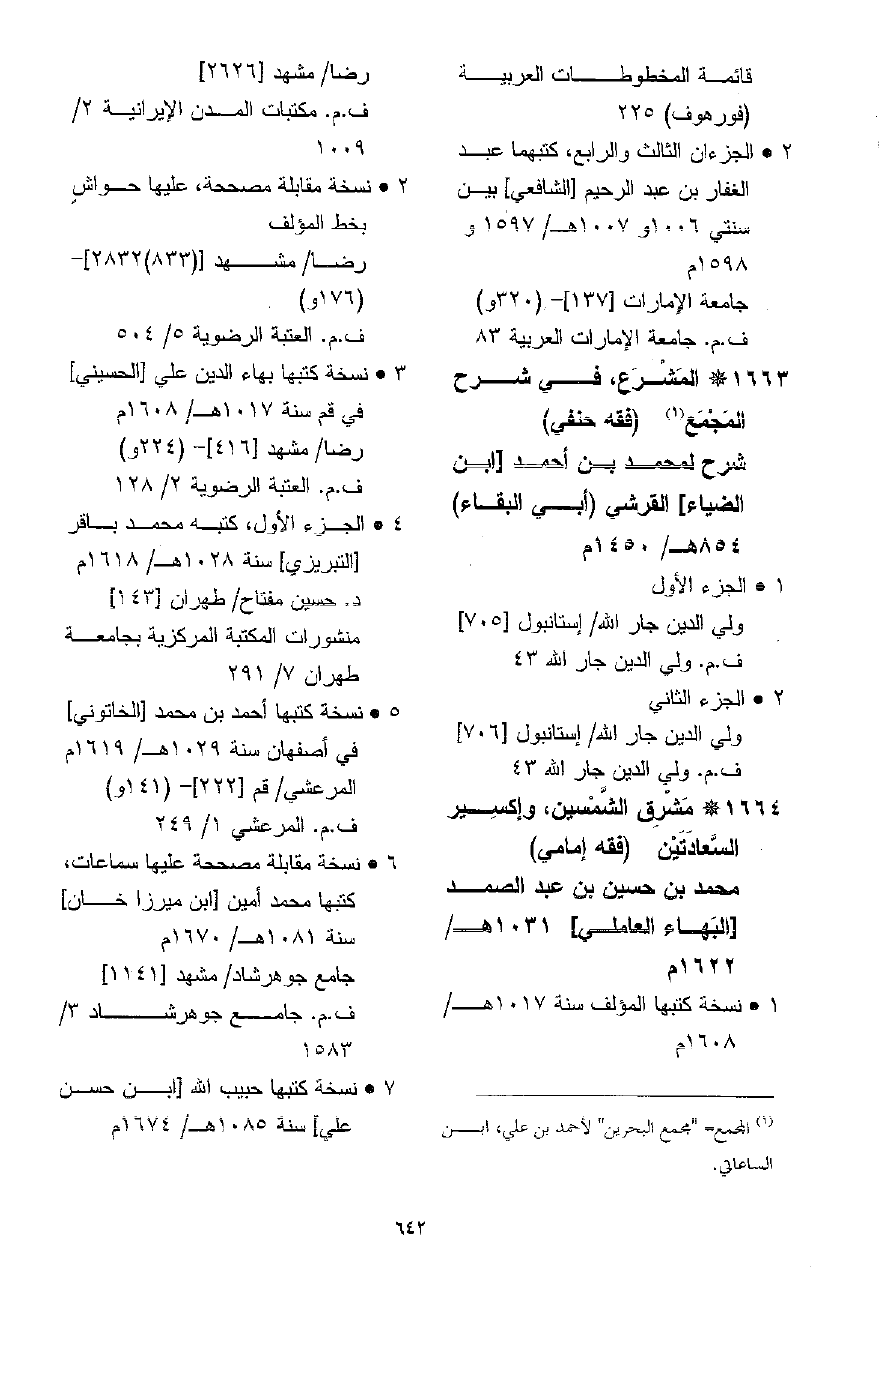 قائمة المخطوطات العربية
(فورهوف) ٢٢٥
٢ • الجزءان الثالث والرابع، كتبهما عبد
الغفار بن عبد الرحيم [الشافعي] بين
سنتي ١٠٠٦و ١٠٠٧هـ/ ١٥٩٧ و
١٥٩٨م
جامعة الإمارات [١٣٧]– (٣٢٠و)
ف.م. جامعة الإمارات العربية ٨٣
١٦٦٣* المَشْرَع، في شرح
المَجْمَع(١) (فقه حنفي)
شرح لمحمد بن أحمد [ابن
الضياء] القرشي (أبي البقاء)
٨٥٤هـ/ ١٤٥٠م
١ • الجزء الأول
ولي الدين جار الله/ إستانبول [٧٠٥]
ف.م. ولي الدين جار الله ٤٣
٢ • الجزء الثاني
ولي الدين جار الله/ إستانبول [٧٠٦]
ف.م. ولي الدين جار الله ٤٣
١٦٦٤* مَشْرِق الشَّمْسين، وإكسير
السَّعادَتَيْن (فقه إمامي)
محمد بن حسين بن عبد الصمد
[البَهاء العاملي] ١٠٣١هـ/
١٦٢٢م
١ • نسخة كتبها المؤلف سنة ١٠١٧هـ/
١٦٠٨م
(١) المجمع= "مجمع البحرين" لأحمد بن علي، ابن
الساعاتي.
رضا/ مشهد [٢٦٢٦]
ف.م. مكتبات المدن الإيرانية ٢/
١٠٠٩
٢ • نسخة مقابلة مصححة، عليها حواشٍ
بخط المؤلف
رضا/ مشهد [(٨٣٣)٢٨٣٢]–
(١٧٦و)
ف.م. العتبة الرضوية ٥/ ٥٠٤
٣ • نسخة كتبها بهاء الدين علي [الحسيني]
في قم سنة ١٠١٧هـ/ ١٦٠٨م
رضا/ مشهد [٤١٦]– (٢٢٤و)
ف.م. العتبة الرضوية ٢/ ١٢٨
٤ • الجزء الأول، كتبه محمد باقر
[التبريزي] سنة ١٠٢٨هـ/ ١٦١٨م
د. حسين مفتاح/ طهران [١٤٣]
منشورات المكتبة المركزية بجامعة
طهران ٧/ ٢٩١
٥ • نسخة كتبها أحمد بن محمد [الخاتوني]
في أصفهان سنة ١٠٢٩هـ/ ١٦١٩م
المرعشي/ قم [٢٢٢]– (١٤١و)
ف.م. المرعشي ١/ ٢٤٩
٦ • نسخة مقابلة مصححة عليها سماعات،
كتبها محمد أمين [ابن ميرزا خان]
سنة ١٠٨١هـ/ ١٦٧٠م
جامع جوهرشاد/ مشهد [١١٤١]
ف.م. جامع جوهرشاد ٣/
١٥٨٣
٧ • نسخة كتبها حبيب الله [ابن حسن
علي] سنة ١٠٨٥هـ/ ١٦٧٤م
٦٤٢